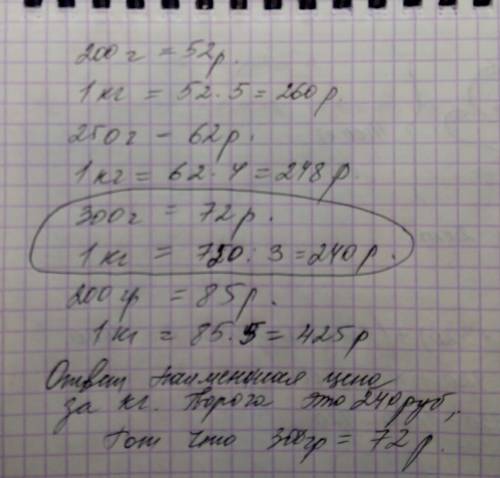 200 г = 52 р.
1 кг = 52 · 5 = 260 р.
250 г – 62 р.
1 кг = 62 · 4 = 248 р
300 г = 72 р.
1 кг = 720 : 3 = 240 р.
200 гр = 85 р.
1 кг = 85 · 5 = 425 р
Ответ наименьшая цена
за кг. творога это 240 руб,
тот что 300 гр = 72 р.